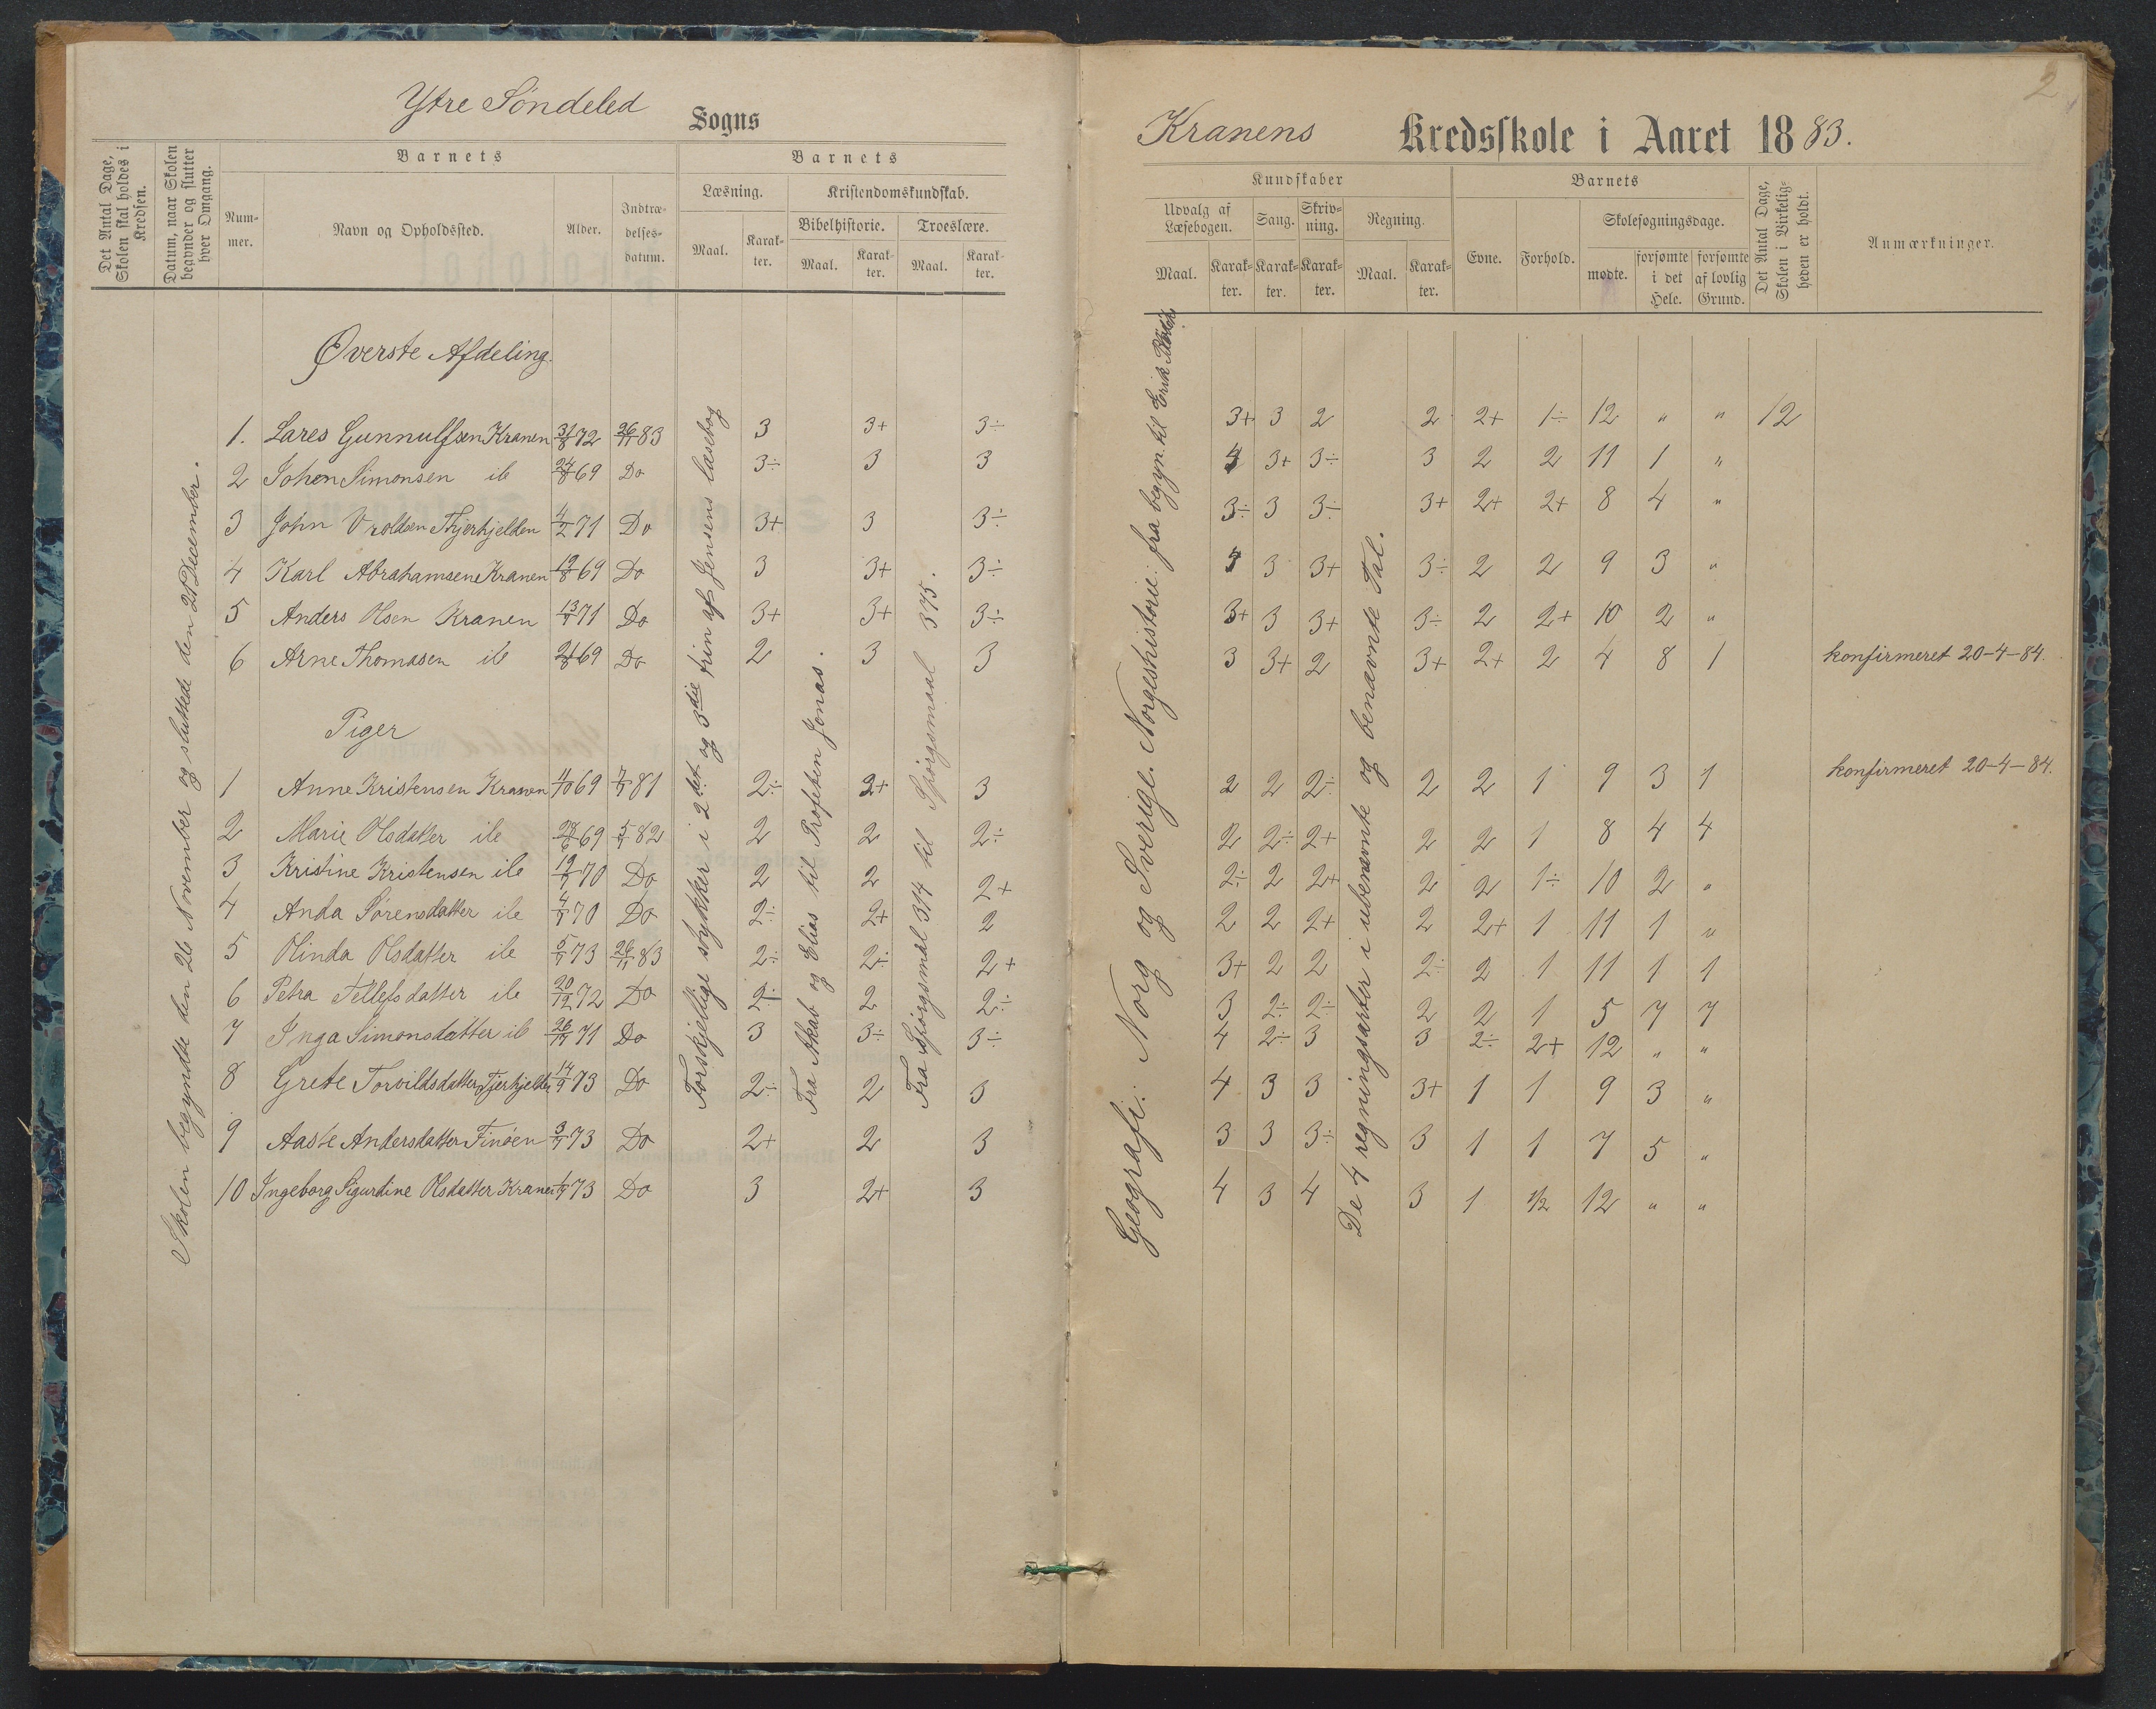 Ytre Söndeled Sogns
Det Antal Dage, Skolen skal holdes i Kredsen.
Datum, naar Skolen begynder og slutter hver Omgang.
Barnets
Nummer.
Navn og Opholdssted.
Alder.
Indtrædelsesdatum.
Barnets
Læsning.
Maal.
Karakter.
Kristendomskundskab.
Bibelhistorie.
Maal.
Karakter.
Troeslære.
Maal.
Karakter.
Skolen begyndte den 26 November og sluttede den 21 December.
Øverste Afdeling.
1. Lares Gunnulfsen Kranen 31/8 72 26/11 83 3 3+ 3÷
2 Johen Simonsen ib 24/8 69 Do 3÷ 3 3
3 John Vroldsen 4/2 71 Do 3+ 3 3÷
4 Karl Abrahamsen Kranen 19/8 69 Do 3 3+ 3÷
5 Anders Olsen Kranen 13/7 71 Do 3+ 3+ 3÷
6 Arne Thomasen ib 21/8 69 Do 2 3 3
Piger
1 Anne Kristensen Kranen 11/10 69 7/7 81 2÷ 2+ 3
2 Marie Olsdatter ib 28/6 69 5/7 82 2 2 2÷
3 Kristine Kristensen ib 19/7 70 Do 2 2 2+
4 Anda Sørensdatter ib 4/7 70 Do 2÷ 2+ 2
5 Olinda Olsdatter ib 5/7 73 26/11 83 2÷ 2÷ 2+
6 Petra Tellefsdatter ib 20/12 72 Do 2÷ 2 2÷
7 Inga Simonsdatter ib 26/12 71 Do 3 3÷ 3÷
8 Grete Torvildsdatter 14/9 73 Do 2÷ 2 3
9 Aaste Andersdatter Finöen 3/7 73 Do 2+ 2 3
10 Ingeborg Sigurdine Olsdatter Kranen 73 Do 3 2+ 3
Forskjellige stykker i 2det og 3die trin af Jensens læsebog
Fra Akab og Elias til Profeten Jonas.
Fra Spörgsmål 314 til Spörgsmaal 375.
2
Kranens Kredsskole i Aaret 1883.
Kundskaber
Udvalg af Læsebogen.
Maal.
Karakter.
Sang.
Karakter.
Skrivning.
Karakter.
Regning.
Maal.
Karakter.
Barnets
Evne.
Forhold.
Skolesøgningsdage.
mødte.
forsømte i det Hele.
forsømte af lovlig Grund.
Det Antal Dage, Skolen i Virkeligheden er holdt.
Anmærkninger.
Geografi: Norg og Sverige. Norgeshistorie: fra begyn. til Erik
De 4 regningsarter i ubenævnte og benævnte Tal.
3+ 3 2 2 2+ 1÷ 12 " " 12
4 3+ 3÷ 3 2 2 11 1 "
3÷ 3 3÷ 3+ 2+ 2+ 8 4 "
3 3+ 3÷ 2 2 9 3 "
3+ 3 3+ 3÷ 2 2+ 10 2 "
3 3+ 2 3+ 2+ 2 4 8 1 konfirmeret 20-4-84.
2 2 2÷ 2 2 1 9 3 1 konfirmeret 20-4-84.
2 2÷ 2+ 2 2 1 8 4 4
2÷ 2 2+ 2 2 1÷ 10 2 "
2 2 2+ 2 2+ 1 11 1 "
3+ 2 2 2÷ 2 1 11 1 1
3 2÷ 2÷ 2 2 1 5 7 7
4 2÷ 3 3 2÷ 2+ 12 " "
4 3 3 3+ 1 1 9 3 "
3 3 3÷ 3 1 1 7 5 "
4 3 4 3 1 1/2 12 " "